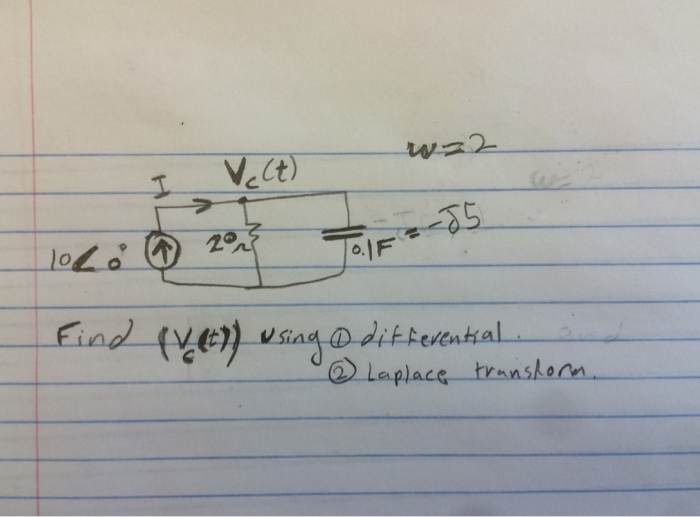 w=2
I
Vc(t)
10∠0°
20Ω
0.1F = -j5
Find (Vc(t)) using ① differential.
② Laplace transform.